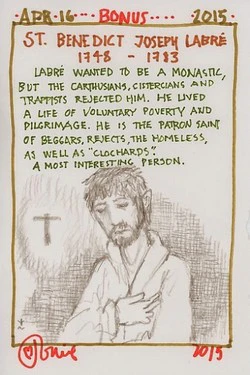 APR·16··· BONUS.... ·2015·
ST. BENEDICT JOSEPH LABRÉ
1748 - 1783
LABRÉ WANTED TO BE A MONASTIC,
BUT THE CARTHUSIANS, CISTERCIANS AND
TRAPPISTS REJECTED HIM. HE LIVED
A LIFE OF VOLUNTARY POVERTY AND
PILGRIMAGE. HE IS THE PATRON SAINT
OF BEGGARS, REJECTS, THE HOMELESS,
AS WELL AS "CLOCHARDS".
A MOST INTERESTING PERSON.
2015